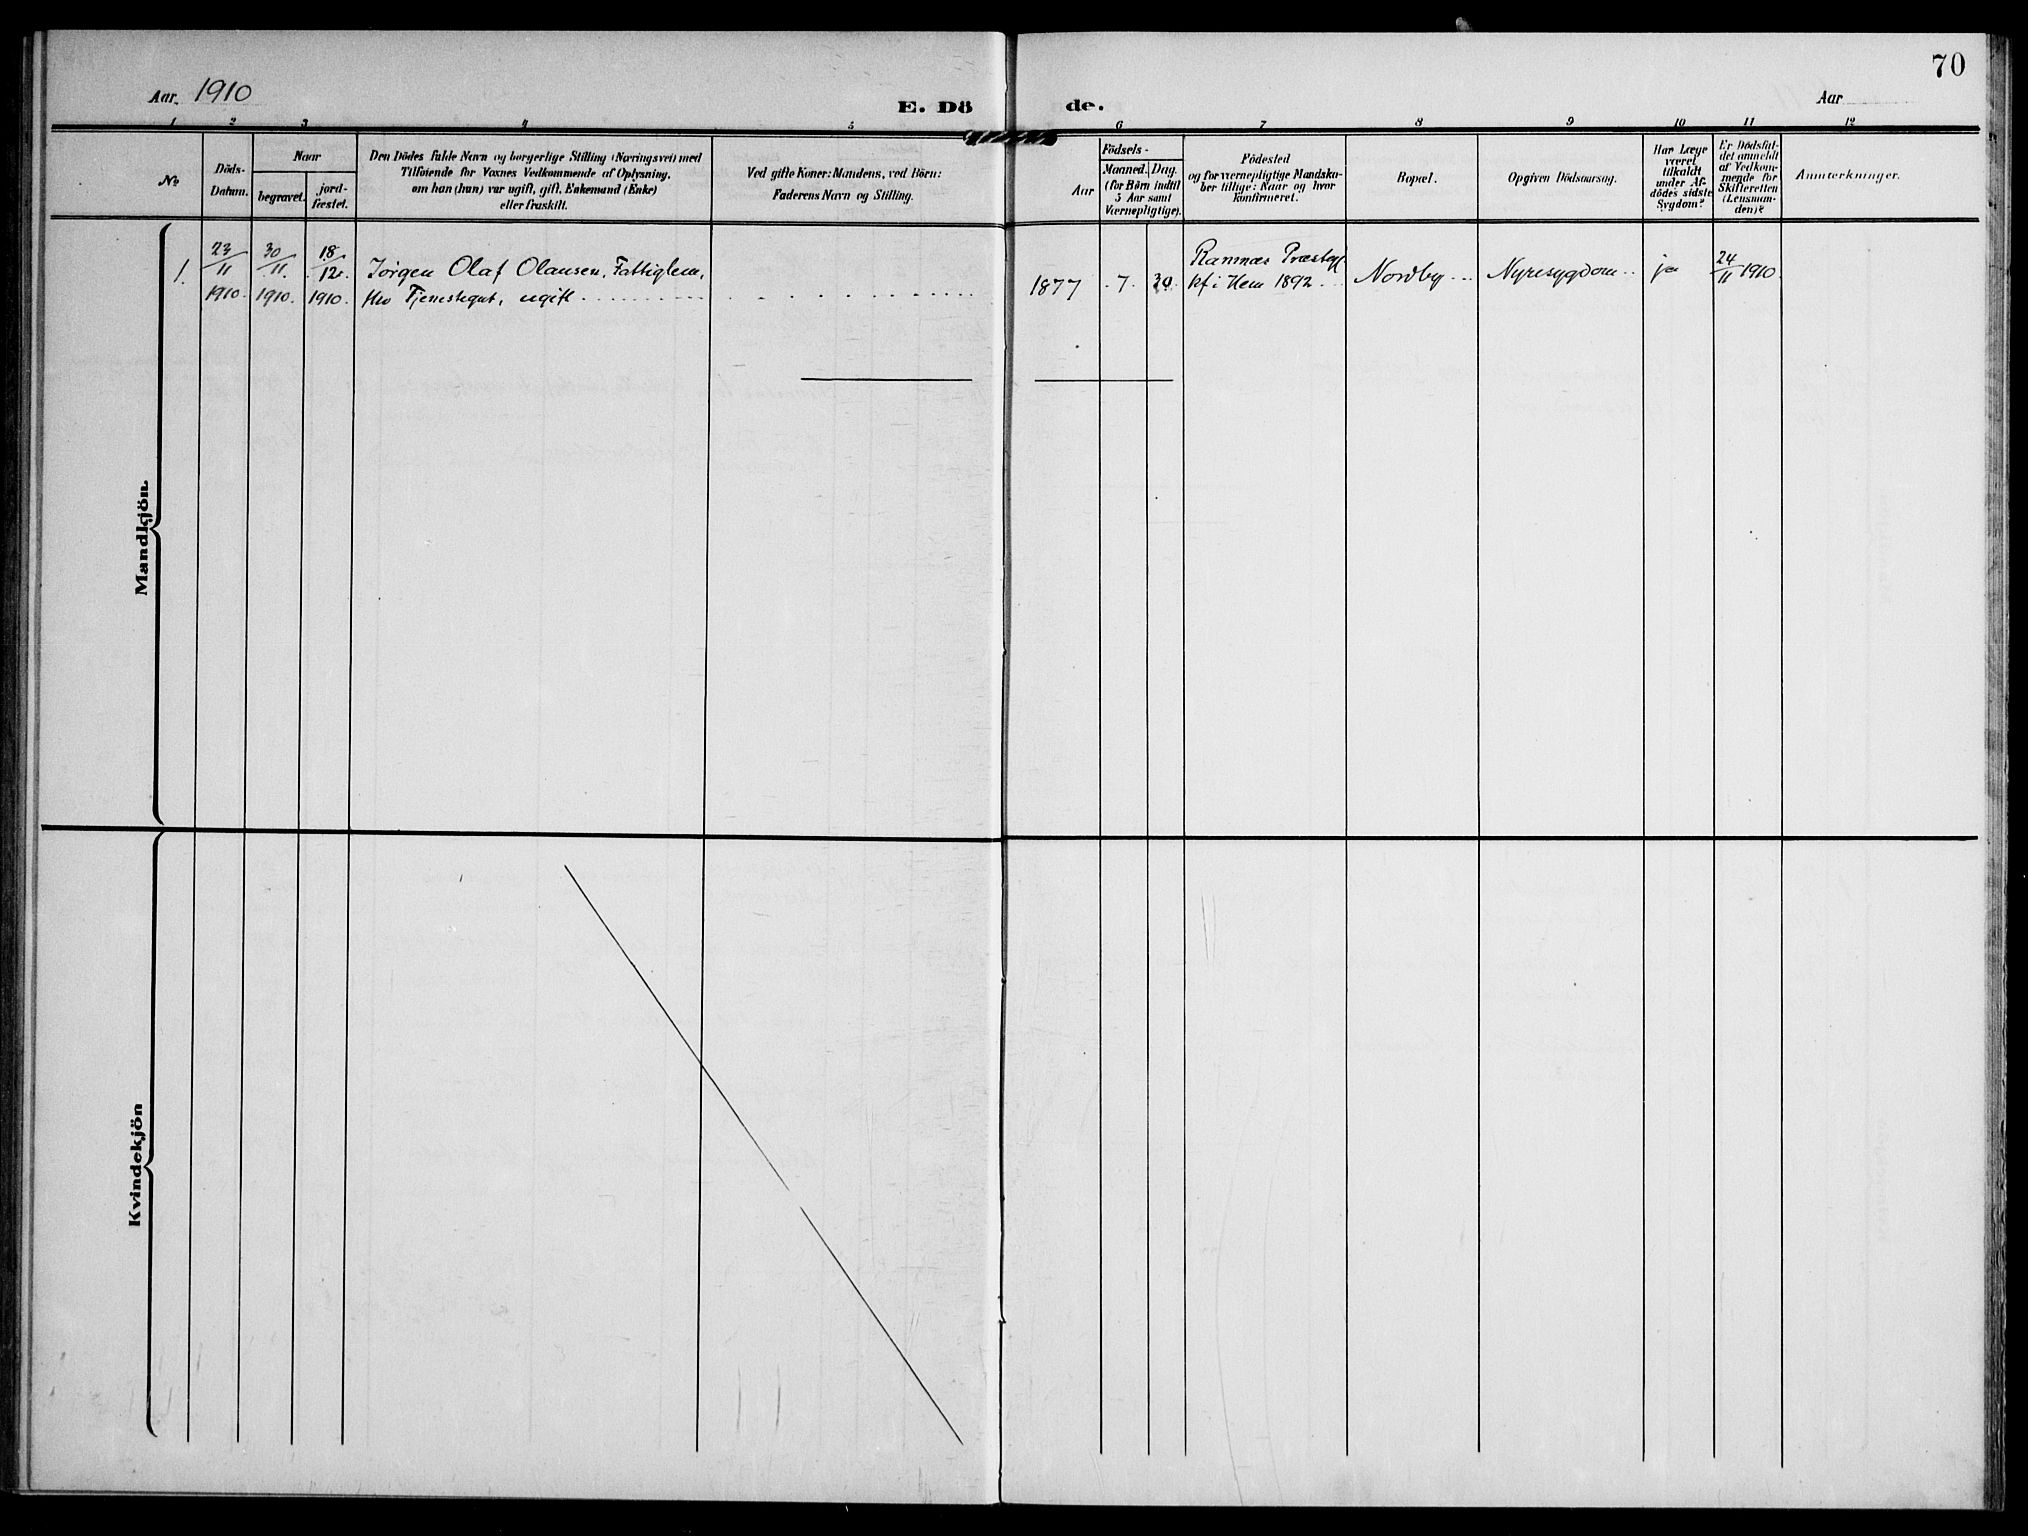 70
Aar. 1910
E. Dö de.
Aar
1 2 3 4 5 6 7 8 9 10 11 12
No
Döds-
Datum.
Naar
begravet.
jord-
fæstet.
Den Dödes fulde Navn og borgerlige Stilling (Næringsvei) med
Tilföiende for Voxnes Vedkommende af Oplysning,
om han (hun) var ugift, gift, Enkemand (Enke)
eller fraskilt.
Ved gifte Koner: Mandens, ved Börn:
Faderens Navn og Stilling.
Födsels-
Aar
Maaned. Dag.
(for Börn indtil
5 Aar samt
Værnepligtige).
Födested
og for værnepligtige Mandska-
ber tillige: Naar og hvor
konfirmeret.
Bopæl.
Opgiven Dödsaarsag.
Har Læge
været
tilkaldt
under Af-
dödes sidste
Sygdom?
Er Dödsfal-
det anmeldt
af Vedkom-
mende for
Skifteretten
(Lensman-
den)?
Anmærkninger.
Mandkjön.
1.
23/11
1910.
30/11.
1910.
18/12.
1910.
Jørgen Olaf Olausen, Fattiglem,
Tjenestegut, ugift
1877
7
30
Ramnæs Præstegj.
kf i Hem 1892
Nordby
Nyresygdom
ja
24/11 1910.
Kvindekjön